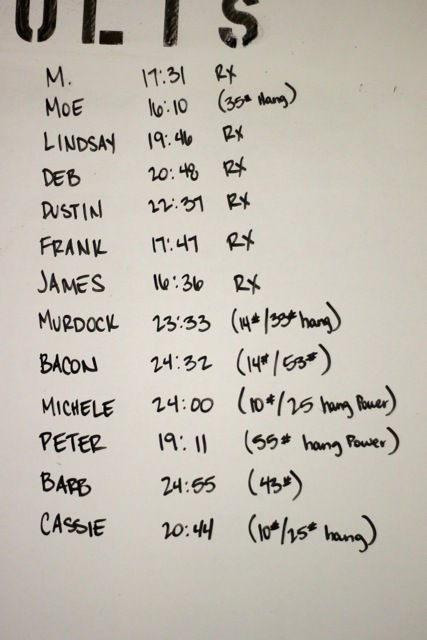 ULTS
M. 17:31 RX
MOE 16:10 (35# Hang)
LINDSAY 19:46 RX
DEB 20:48 RX
DUSTIN 22:37 RX
FRANK 17:47 RX
JAMES 16:36 RX
MURDOCK 23:33 (14#/33# hang)
BACON 24:32 (14#/53#)
MICHELE 24:00 (10#/25 hang Power)
PETER 19:11 (55# hang Power)
BARB 24:55 (43#)
CASSIE 20:44 (10#/25# hang)